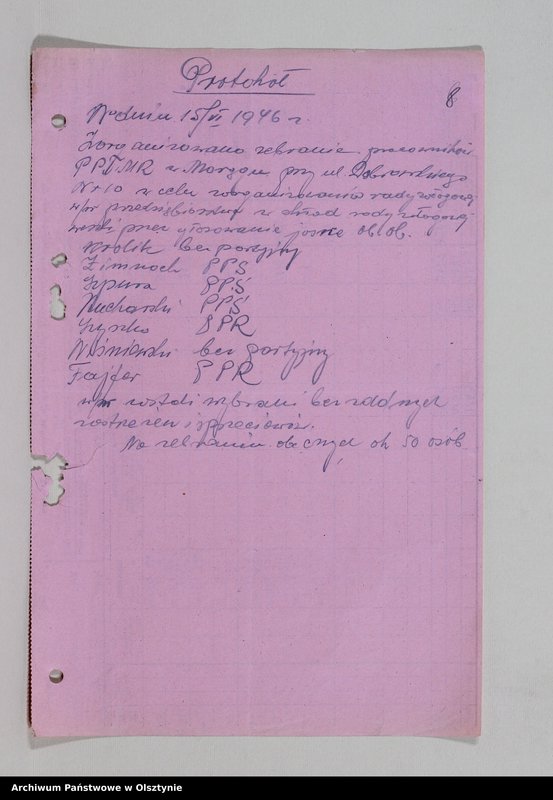 Protokół
8
W dniu 15/VI 1946 r.
Zorganizowano zebranie pracowników
PPTMR w przy ul Dąbrowskiego
Nr 10 w celu zorganizowania rady
w/w w skład rady
weszli przez głosowanie ob. ob.
Krolik bezpartyjny
Zimnoch PPS
Szpura PPS
Kucharski PPS
Szyszko PPR
Wiśniewski bezpartyjny
Fajfer PPR
w/w zostali wybrani bez żadnych
i
Na zebraniu obecnych ok 50 osób
Archiwum Państwowe w Olsztynie